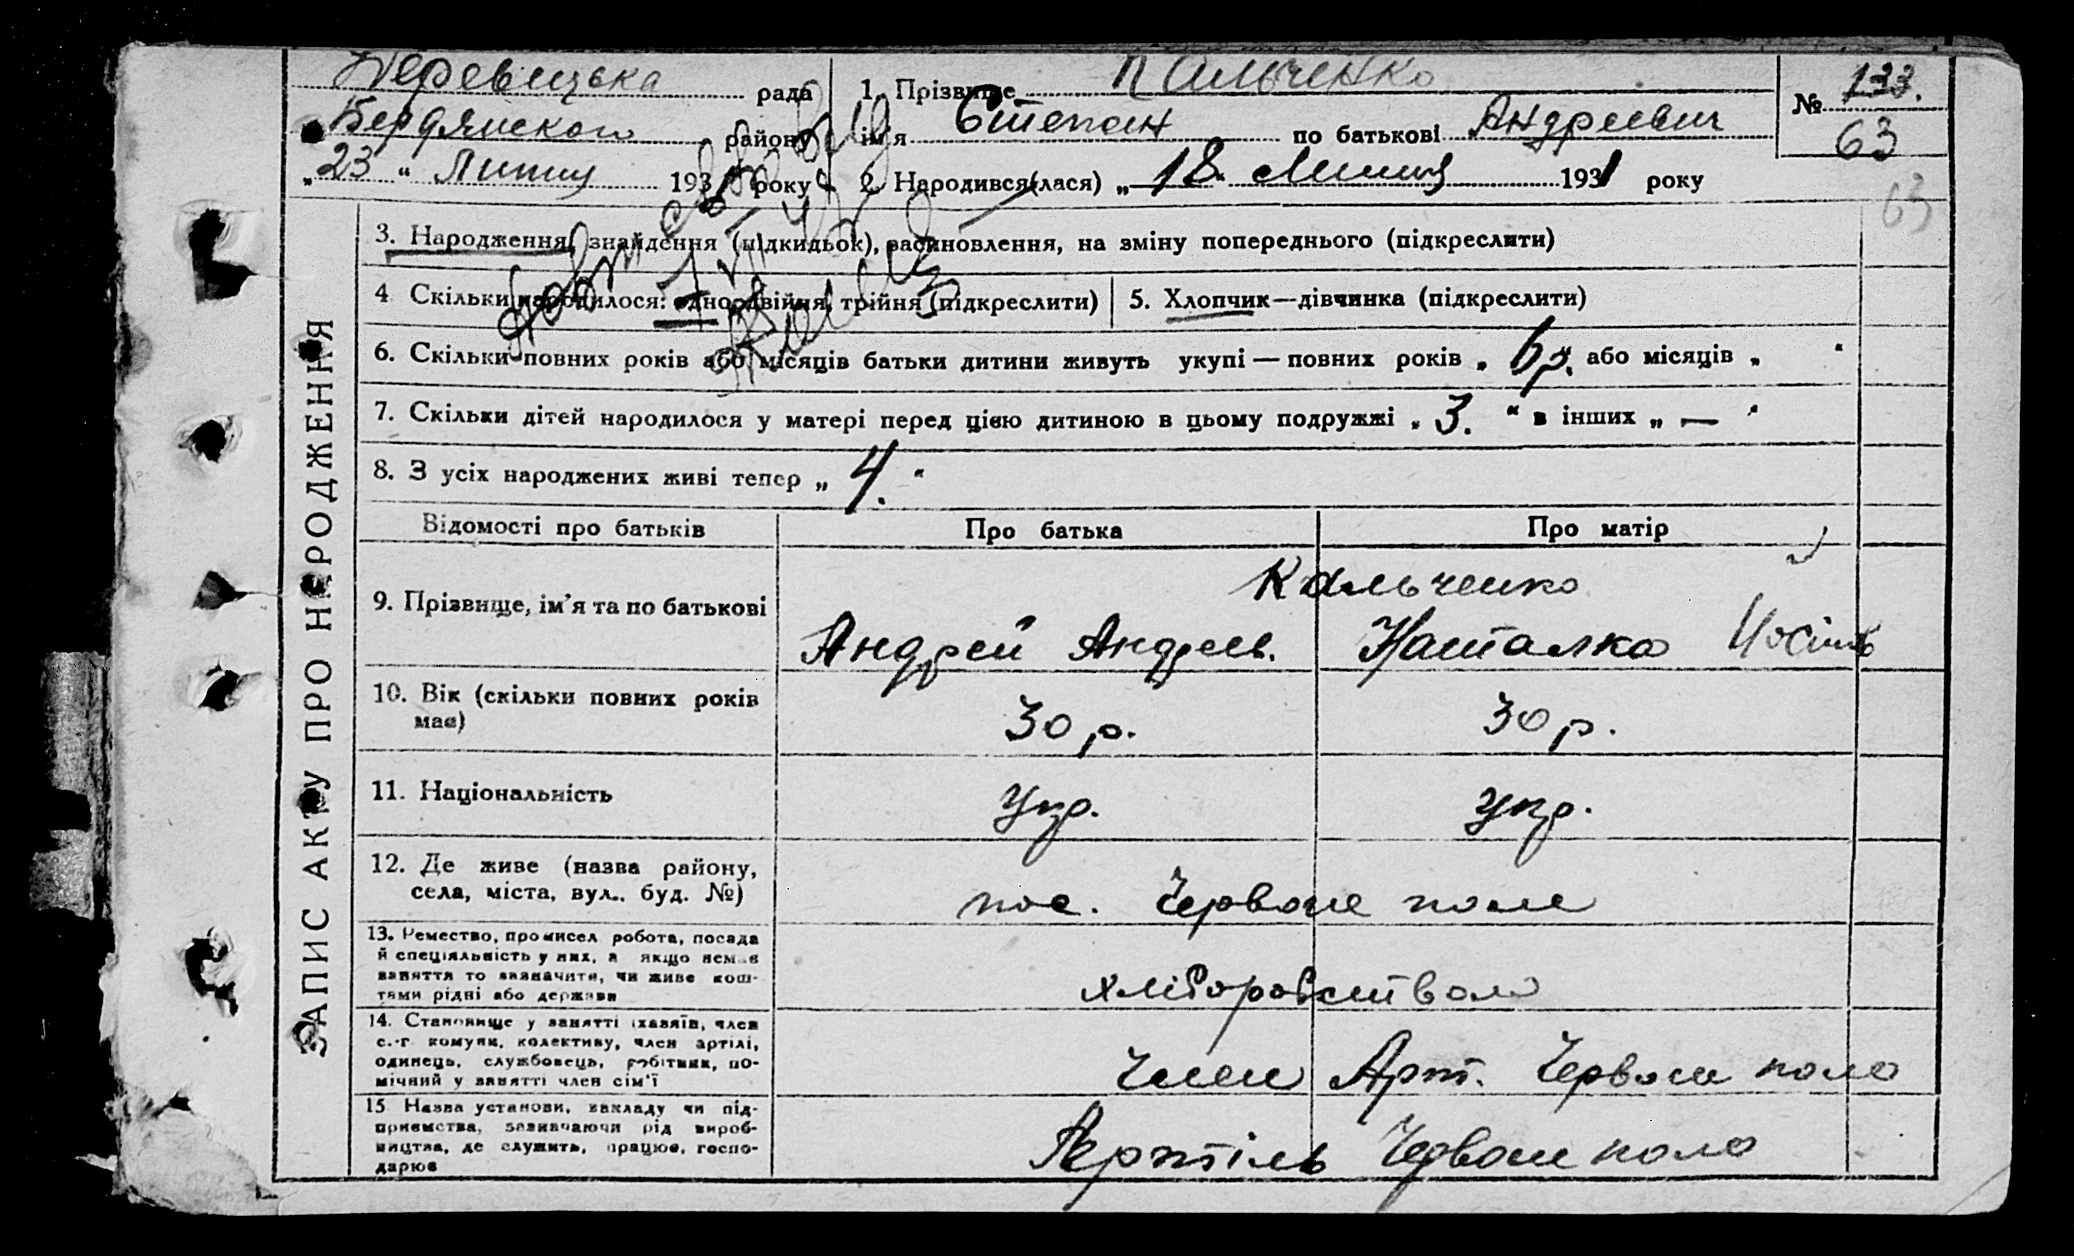 рада
Бердянського району
„23“ Липня 1931 року
1. Прізвище Пальченко
ім'я Степан по батькові Андреевич
2. Народився(лася) „18 Липня 1931 року
№ 133.
63
63
ЗАПИС АКТУ ПРО НАРОДЖЕННЯ
3. Народження, знайдення (підкидьок), засиновлення, на зміну попереднього (підкреслити)
4 Скільки народилося: одно, двійня, трійня (підкреслити)
5. Хлопчик—дівчинка (підкреслити)
6. Скільки повних років або місяців батьки дитини живуть укупі — повних років „ 6 р. або місяців „ “
7. Скільки дітей народилося у матері перед цією дитиною в цьому подружжі „ 3. “ в інших „ — “
8. З усіх народжених живі тепер „ 4. “
Відомості про батьків Про батька Про матір
9. Прізвище, ім'я та по батькові
Кальченко
Андрей Андреев. Наталка
10. Вік (скільки повних років має) 30 р. 30 р.
11. Національність Укр. Укр.
12. Де живе (назва району, села, міста, вул., буд. №)
пос. Червоне поле
13. Ремество, промисел робота, посада
й спеціяльність у них, а якщо немає
заняття то зазначити, чи живе кош-
тами рідні або держави
хліборобством
14. Становище у занятті (хазяїн, член
с.-г комуни, колективу, член артілі,
одинець, службовець, робітник, по-
мічний у занятті член сім'ї
Член Арт. Червоне поле
15 Назва установи, закладу чи під-
приємства, зазначаючи рід вироб-
ництва, де служить, працює, госпо-
дарює
Артіль Червоне поле